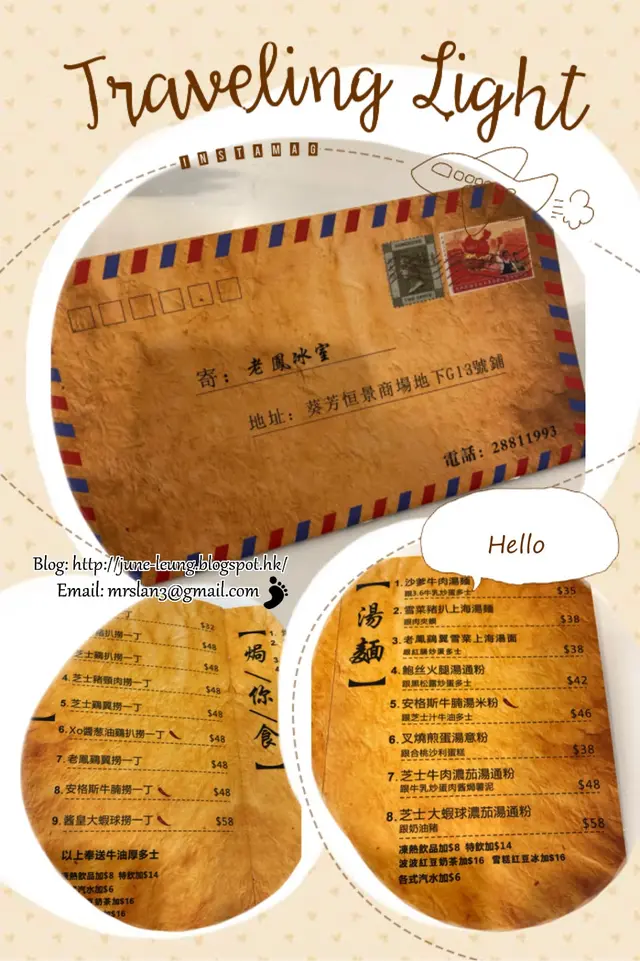 Traveling Light
INSTAMAG
寄：老鳳冰室
地址：葵芳恒景商場地下G13號鋪
電話：28811993
Hello
Blog: http://june-leung.blogspot.hk/
Email: mrslan3@gmail.com
$32
豬扒撈一丁 $48
芝士鷄扒撈一丁 $48
4. 芝士豬頸肉撈一丁 $48
5. 芝士鷄翼撈一丁 $48
6. Xo醬葱油鷄扒撈一丁 $48
7. 老鳳鷄翼撈一丁 $48
8. 安格斯牛腩撈一丁 $48
9. 醬皇大蝦球撈一丁 $58
以上奉送牛油厚多士
凍熱飲品加$8 特飲加$14
汽水加$6
豆奶茶加$16
加$16
【焗/你/食】
【湯麵】
1. 沙爹牛肉湯麵 $35
跟3.6牛乳炒蛋多士
2. 雪菜豬扒上海湯麵 $38
跟肉夾饃
3. 老鳳鷄翼雪菜上海湯面 $38
跟紅腸炒蛋多士
4. 鮑丝火腿湯通粉 $42
跟黑松露炒蛋多士
5. 安格斯牛腩湯米粉 $46
跟芝士汁牛油多士
6. 叉燒煎蛋湯意粉 $38
跟合桃沙利蛋糕
7. 芝士牛肉濃茄湯通粉 $48
跟牛乳炒蛋肉醬焗薯泥
8. 芝士大蝦球濃茄湯通粉 $58
跟奶油豬
凍熱飲品加$8 特飲加$14
波波紅豆奶茶加$16 雪糕紅豆冰加$16
各式汽水加$6